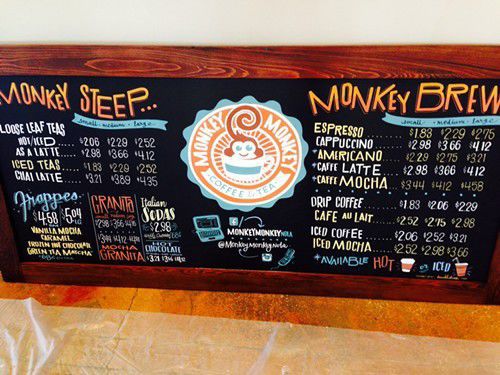 MONKEY STEEP...
small - medium - large
LOOSE LEAF TEAS
HOT/ICED ... $2.06 $2.29 $2.52
AS A LATTE ... $2.98 $3.66 $4.12
ICED TEAS ... $1.83 $2.29 $2.52
CHAI LATTE ... $3.21 $3.89 $4.35
Frappes
$4.58 $5.04
VANILLA MOCHA
CARAMEL
FROZEN HOT CHOCOLATE
GREEN TEA MATCHA
GRANITA
MOCHA
GRANITA
Italian
SODAS
$2.98
HOT
CHOCOLATE
MONKEY MONKEY
COFFEE & TEA
MONKEYMONKEYNOLA
@Monkeymonkeynola
MONKEY BREW
small - medium - large
ESPRESSO ... $1.83 $2.29 $2.75
CAPPUCCINO ... $2.98 $3.66 $4.12
*AMERICANO ... $2.29 $2.75 $3.21
*CAFFE LATTE ... $2.98 $3.66 $4.12
*CAFFE MOCHA ... $3.44 $4.12 $4.58
DRIP COFFEE ... $1.83 $2.06 $2.29
CAFE AU LAIT ... $2.52 $2.75 $2.98
ICED COFFEE ... $2.06 $2.52 $3.21
ICED MOCHA ... $2.52 $2.98 $3.66
*AVAILABLE HOT or ICED